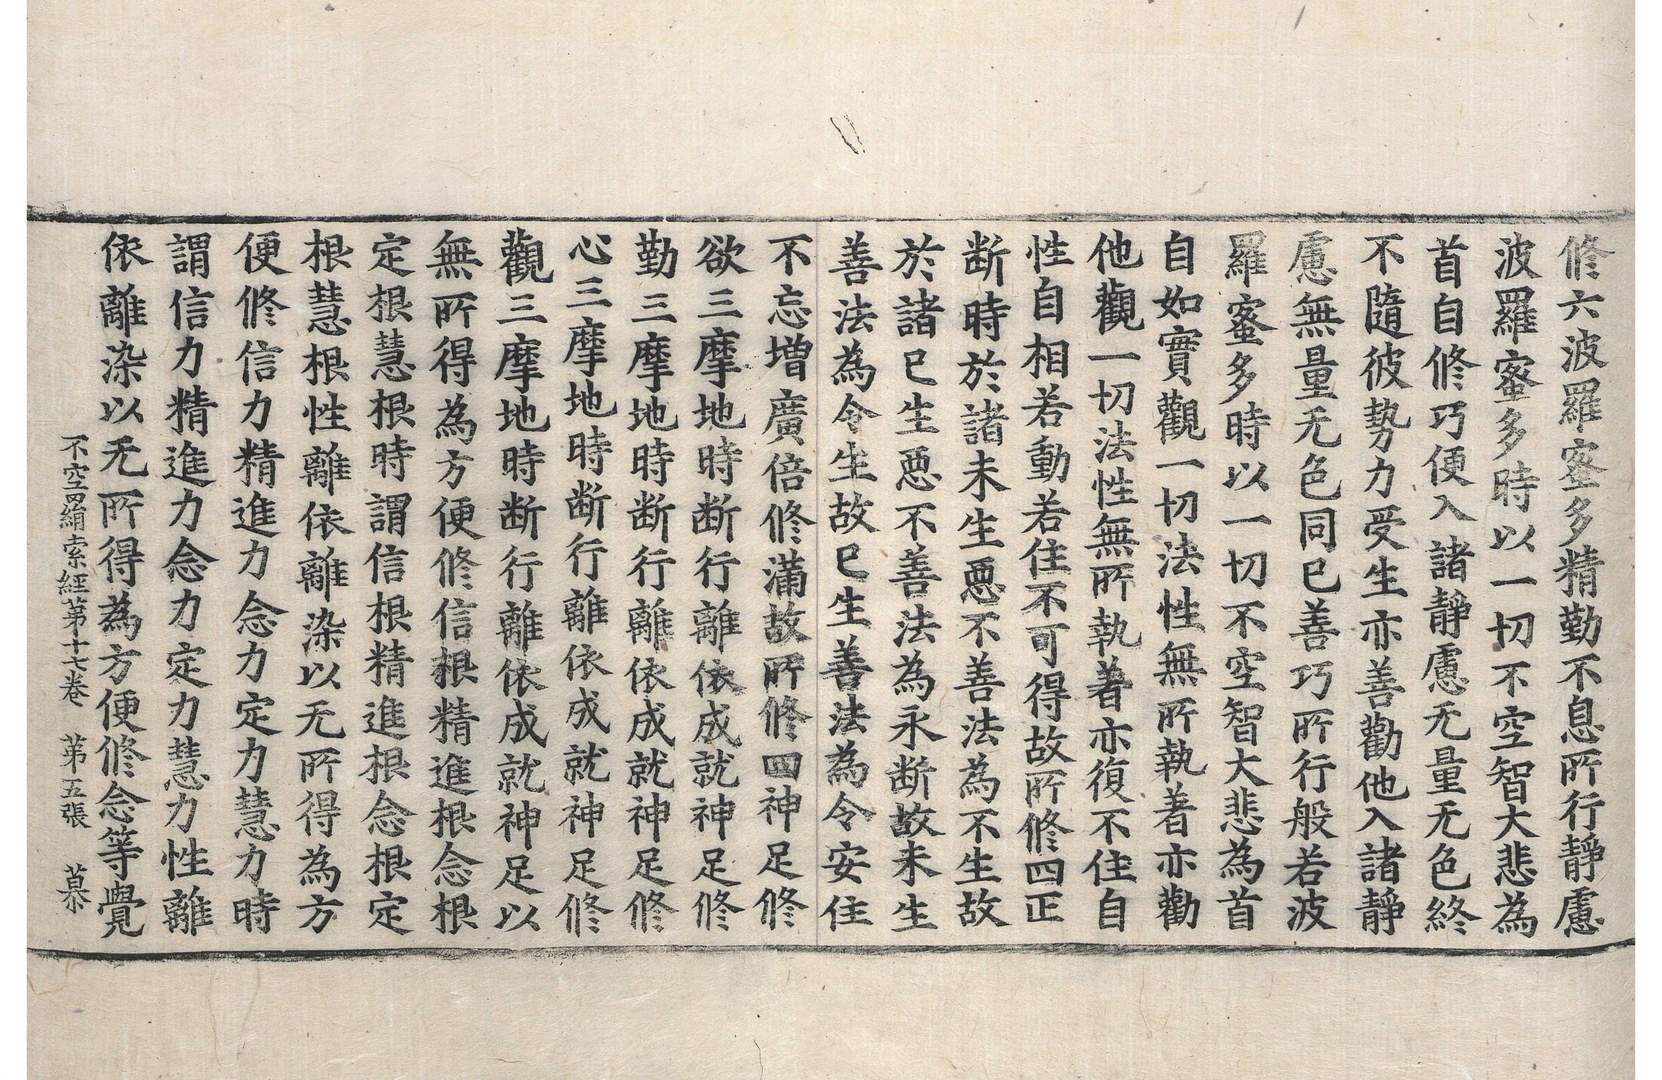 修六波羅蜜多精勤不息所行靜慮
波羅蜜多時以一切不空智大悲為
首自修巧便入諸靜慮无量无色終
不隨彼勢力受生亦善勸他入諸靜
慮無量无色同已善巧所行般若波
羅蜜多時以一切不空智大悲為首
自如實觀一切法性無所執著亦勸
他觀一切法性無所執著亦復不住自
性自相若動若住不可得故所修四正
断時於諸未生惡不善法為不生故
於諸已生惡不善法為永断故未生
善法為令生故已生善法為令安住
不忘增廣倍修滿故所修四神足修
欲三摩地時断行離依成就神足修
勤三摩地時断行離依成就神足修
心三摩地時断行離依成就神足修
觀三摩地時断行離依成就神足以
無所得為方便修信根精進根念根
定根慧根時謂信根精進根念根定
根慧根性離依離染以无所得為方
便修信力精進力念力定力慧力時
謂信力精進力念力定力慧力性離
依離染以无所得為方便修念等覺
不空羂索經第十七卷 第五張 慕